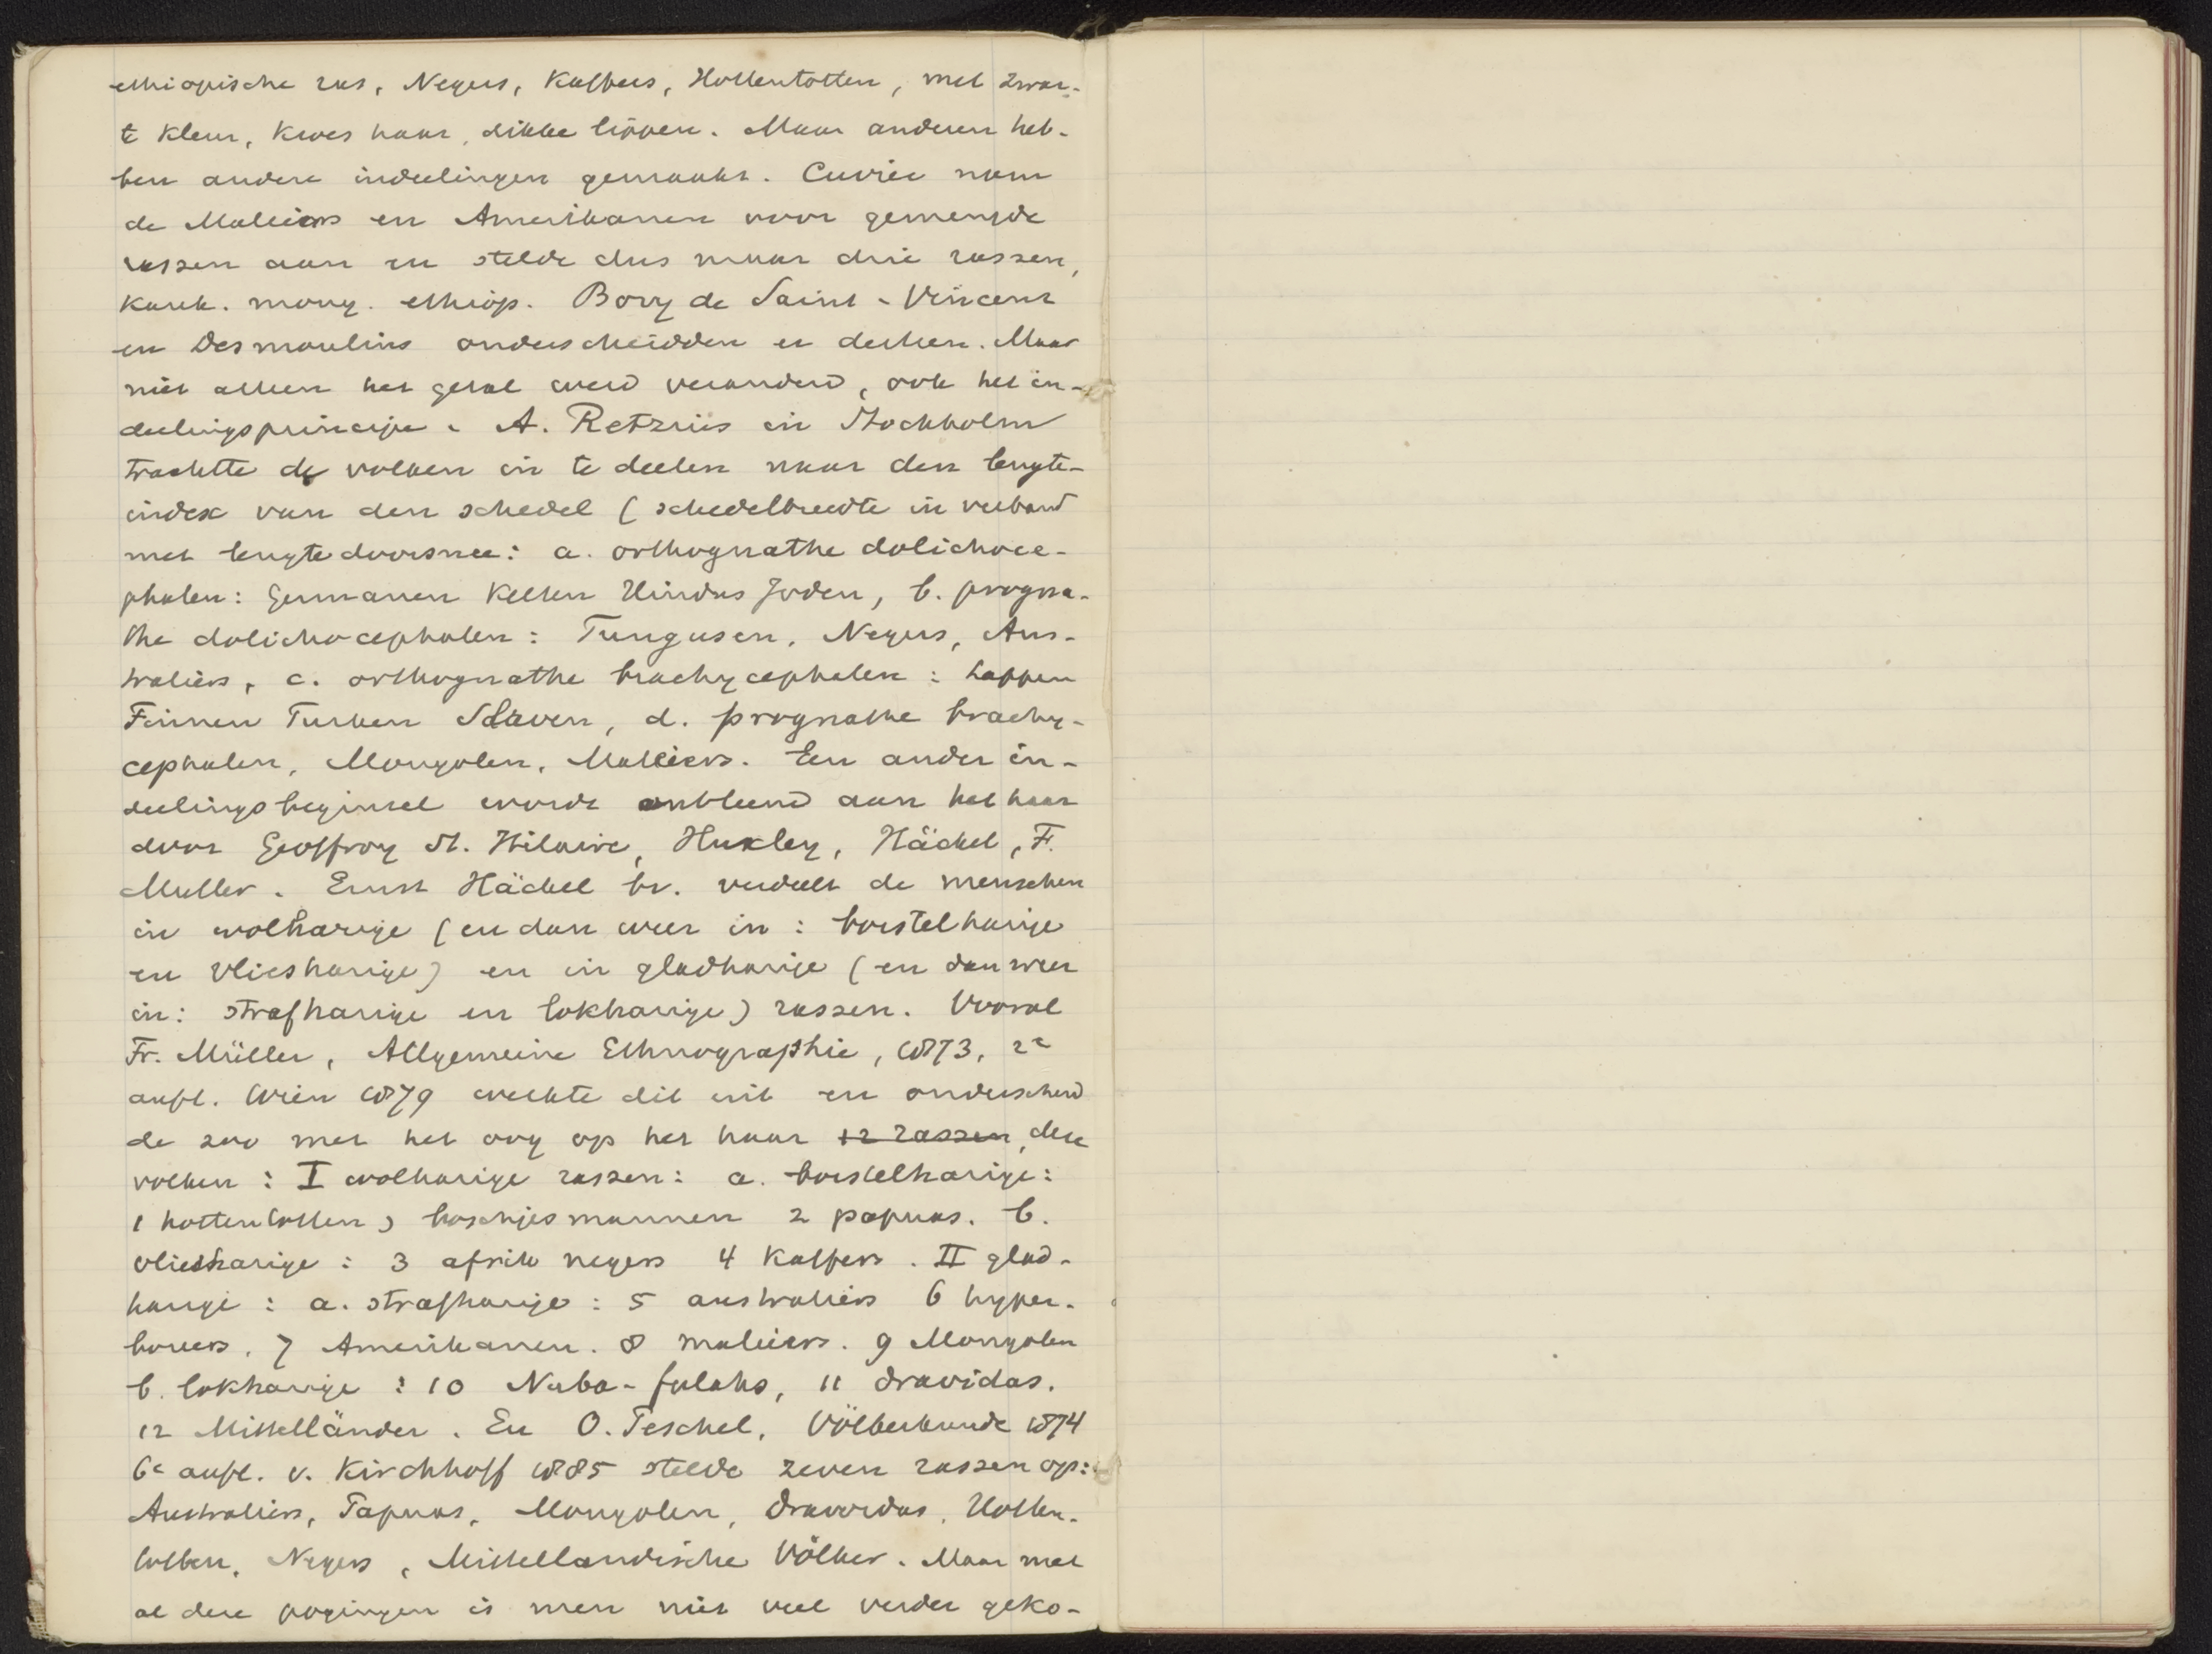 ethiopische ras, Negers, Kaffers, Hottentotten, met zwar-
te kleur, kroes haar, dikke lippen. Maar anderen heb-
ben andere indeelingen gemaakt. Cuvier nam
de Maleiers en Amerikanen voor gemengde
rassen aan en stelde dus maar drie rassen,
kauk. mong. ethiop. Bory de Saint-Vincent
en Desmoulins onderscheidden er dertien. Maar
niet alleen het getal werd veranderd, ook het in-
deelingsprincipe. A. Retzius in Stockholm
trachtte de volken in te deelen naar den lengte-
index van den schedel (schedelbreedte in verband
met lengtedoorsnee: a. orthognathe dolichoce-
phalen: Germanen Kelten Hindus Joden, b. progna-
the dolichocephalen: Tungusen, Negers, Aus-
traliërs, c. orthognathe brachycephalen: Lappen
Finnen Turken Slaven, d. prognathe brachy-
cephalen, Mongolen, Maleiers. Een ander in-
deelingsbeginsel wordt ontleend aan het haar
door Geoffroy St. Hilaire, Huxley, Häckel, F.
Muller. Ernst Häckel bv. verdeelt de menschen
in wolharige (en dan weer in: borstelharige
en vliesharige) en in gladharige (en dan weer
in: strafharige en lokharige) rassen. Vooral
Fr. Müller, Allgemeine Ethnographie, 1873, 2e
aufl. Wien 1879 werkte dit uit en onderscheid
de zoo met het oog op het haar 12 rassen, deze
volken: I wolharige rassen: a. borstelharige:
1 hottentotten, boschjesmannen 2 papuas. b.
vliesharige: 3 afrik negers 4 Kaffers. II glad-
harige: a. strafharige: 5 australiërs 6 hyper-
boreers. 7 Amerikanen. 8 maleiers. 9 Mongolen
b. lokharige: 10 Nuba-fulahs, 11 dravidas.
12 Mittelländer. En O. Peschel, Völkerkunde 1874
6e aufl. v. Kirchhoff 1885 stelde zeven rassen op:
Australiërs, Papuas, Mongolen, Dravidas, Hotten-
totten, Negers, Mittellandische Völker. Maar met
al deze pogingen is men niet veel verder geko-